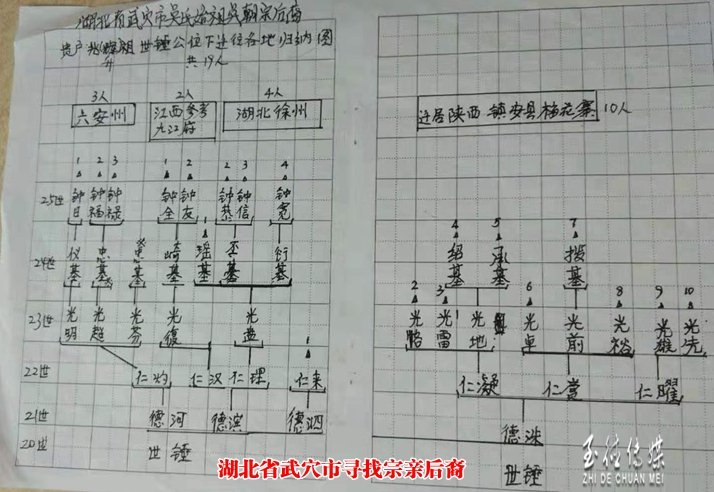 湖北省武穴市吴氏始祖吴朝宗后裔
世锤公位下迁往各地归纳图
共19人
3人 2人 4人
六安州 江西 九江府 湖北徐州
1 2 3 1 2 2 3 4
25世 钟日 钟福 钟禄 钟全 钟友 钟恭 钟信 钟宽
1
24世 仪基 忠基 崇基 崎基 瑶基 丕基 衍基
23世 光明 光超 光芬 光復 光盛
1
22世 仁灼 仁汉 仁理 仁来
21世 德河 德滨 德泗
20世 世锤
迁居陕西镇安县梅花寨 10人
4 5 7
绍基 承基 拔基
2 3 6 8 9 10
光路 光雷 光地 光卓 光前 光裕 光雄 光先
仁凝 仁赏 仁曜
德洙
世锤
湖北省武穴市寻找宗亲后裔
至德传媒
ZHI DE CHUAN MEI